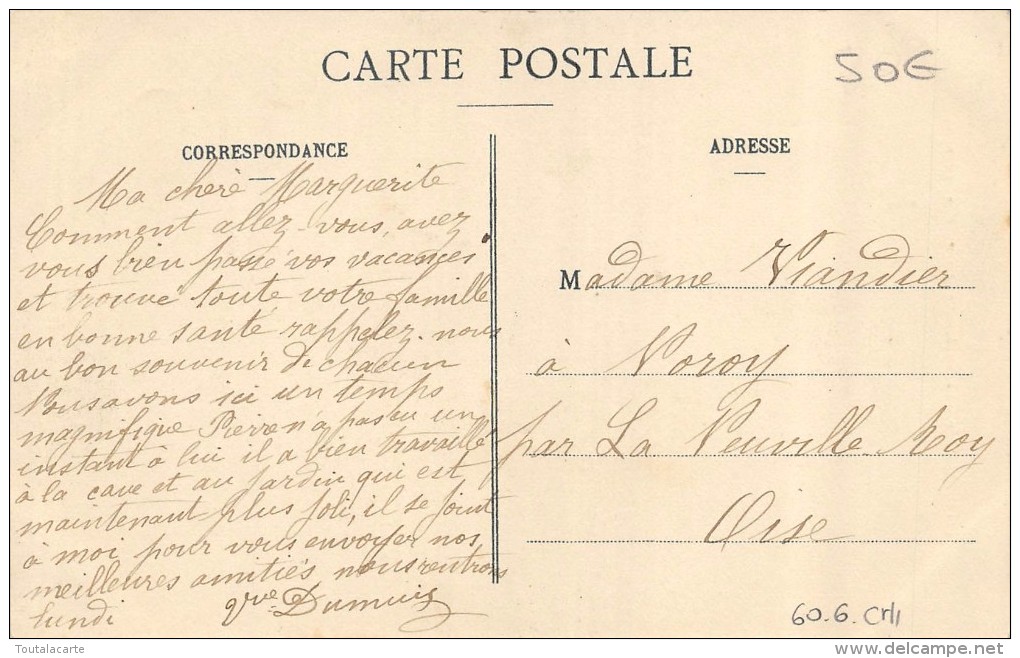 CARTE POSTALE
50€
CORRESPONDANCE
ADRESSE
Ma chère Marguerite
Comment allez-vous, avez
vous bien passé vos vacances
et trouvé toute votre famille
en bonne santé rappelez-nous
au bon souvenir de chacun
Nous avons ici un temps
magnifique Pierre n'a pas eu un
instant à lui il a bien travaillé
à la cave et au jardin qui est
maintenant plus joli, il se joint
à moi pour vous envoyer nos
meilleures amitiés nous rentrons
lundi
Madame Viandier
à Noroy
par La Neuville Roy
Oise
60.6.
Toutalacarte
delcampe.net